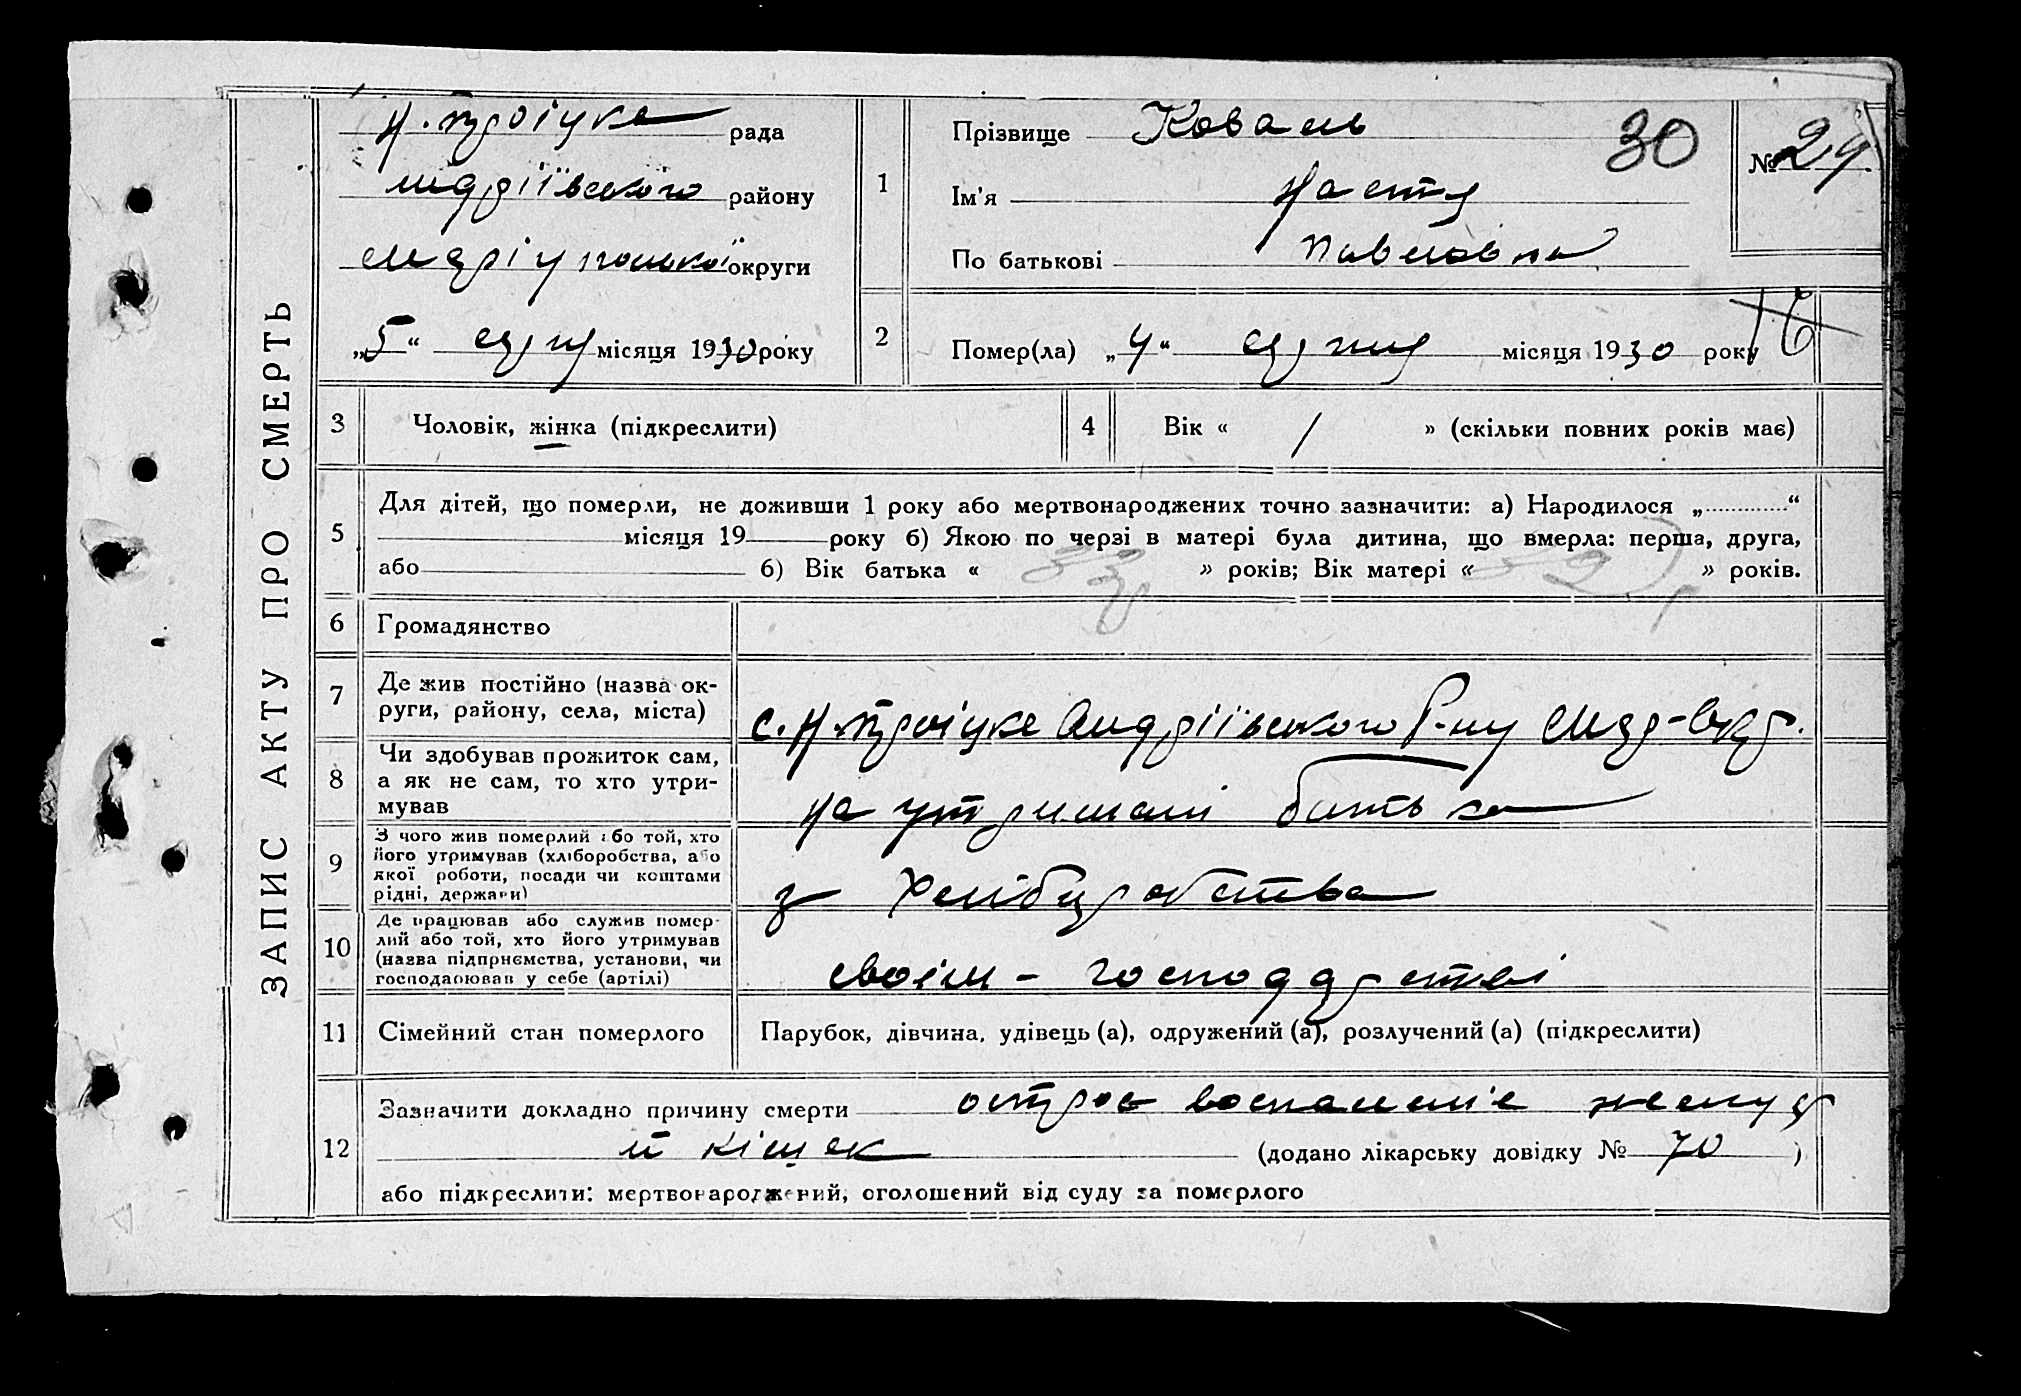 ЗАПИС АКТУ ПРО СМЕРТЬ
Н.-Троіцка рада
Андріївського району
Маріупольської округи
„5“ серпня місяця 1930 року
1
Прізвище Коваль
30
№ 29
Ім'я Настя
По батькові Павловна
2
Помер(ла) „4“ серпня місяця 1930 року
16
3 Чоловік, жінка (підкреслити)
4 Вік « 1 » (скільки повних років має)
5 Для дітей, що померли, не доживши 1 року або мертвонароджених точно зазначити: а) Народилося „ “
місяця 19 року б) Якою по черзі в матері була дитина, що вмерла: перша, друга,
або б) Вік батька « 33 » років; Вік матері « 32 » років.
6 Громадянство
7 Де жив постійно (назва ок-
руги, району, села, міста)
с. Н.-Троіцке Андріївського р-ну Мар-Окр.
8 Чи здобував прожиток сам,
а як не сам, то хто утри-
мував
на утримані батька
9 З чого жив померлий або той, хто
його утримував (хліборобства, або
якої роботи, посади чи коштами
рідні, держави)
з хліборобства
10 Де працював або служив помер-
лий або той, хто його утримував
(назва підприємства, установи, чи
господарював у себе (артілі)
своім - господарстві
11 Сімейний стан померлого
Парубок, дівчина, удівець (а), одружений (а), розлучений (а) (підкреслити)
12 Зазначити докладно причину смерти острое воспаленіе желуд
и кішек (додано лікарську довідку № 70 )
або підкреслити: мертвонароджений, оголошений від суду за померлого